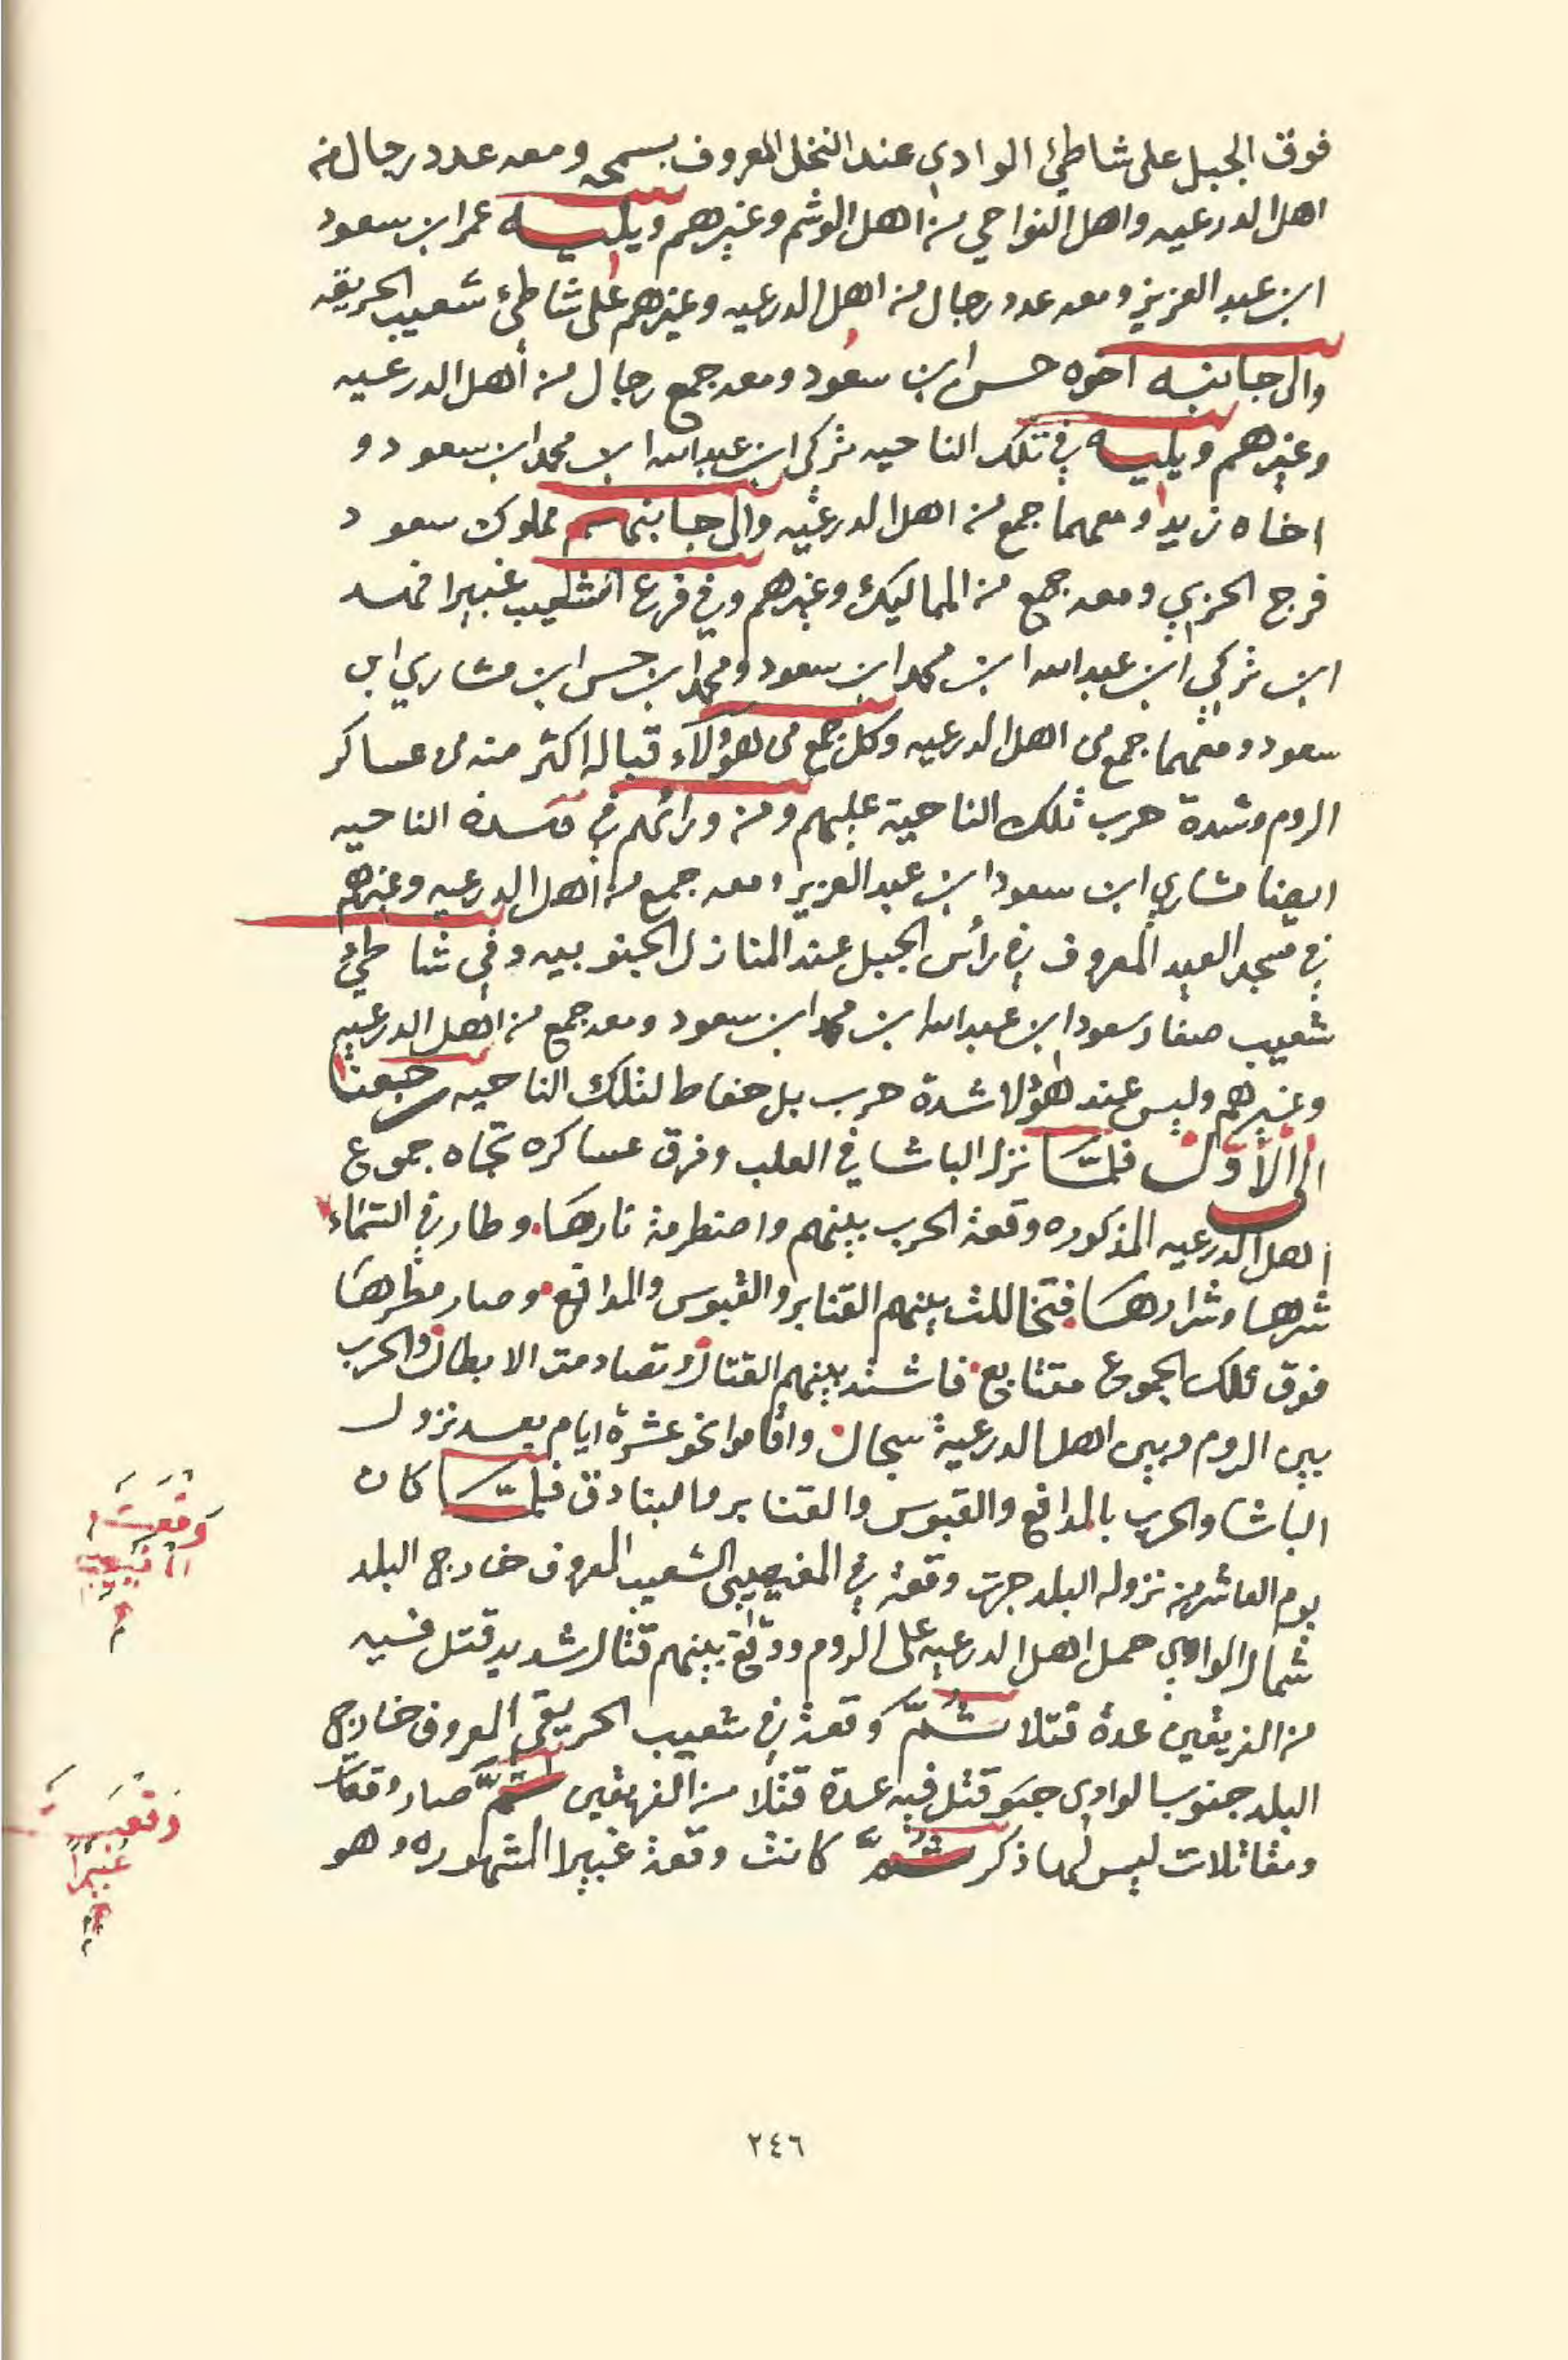 فوق الجبل على شاطئ الوادي عند النخل المعروف بسمحه ومعه عدد رجال من
اهل الدرعيه واهل النواحي من اهل الوشم وغيرهم ويليه عمر ابن سعود
ابن عبد العزيز ومعه عدد رجال من اهل الدرعيه وغيرهم على شاطئ شعيب الحريقه
والى جانبه اخوه حسن ابن سعود ومعه جمع رجال من أهل الدرعيه
وغيرهم ويليه في تلك الناحيه تركى ابن عبد الله ابن محمد ابن سعود و
اخاه زيد ومعهما جمع من اهل الدرعيه والى جانبهم مملوك سعود
فرج الحربي ومعه جمع من المماليك وغيرهم وفي فرع الشعيب غبيرا فهد
ابن تركي ابن عبد الله ابن محمد ابن سعود ومحمد ابن حسن ابن مشاري ابن
سعود ومعهما جمع من اهل الدرعيه وكل جمع من هؤلآء قباله اكثر منه من عساكر
الروم وشدة حرب تلك الناحية عليهم ومن ورائهم في هذه الناحيه
ايضا مشاري ابن سعود ابن عبد العزيز ومعه جمع من أهل الدرعيه وغيرهم
في مسجد العيد المعروف في رأس الجبل عند المنازل الجنوبيه وفي شاطئ
شعيب صفار سعود ابن عبد الله بن محمد ابن سعود ومعه جمع من اهل الدرعيه
وغيرهم وليس عند هؤلا شدة حرب بل حفاظ لتلك الناحيه رجعنا
الى الأول فلمّا نزل الباشا في العلب وفرق عساكره تجاه جموع
أهل الدرعيه المذكوره وقعة الحرب بينهم واضطرمة نارها وطار في السّماء
شرها وشرارها فتخاللت بينهم القنابر والقبوس والمدافع وصار مطرها
فوق تلك الجموع متتابع فاشتد بينهم القتال وتصادمت الابطال والحرب
بين الروم وبين اهل الدرعية سجال واقاموا نحو عشرة ايام بعد نزول
الباشا والحرب بالمدافع والقبوس والقنابر والبنادق فلمّا كان
يوم العاشر من نزوله البلد جرت وقعة في المغيصيبى الشعيب المعروف خارج البلد
شمال الوادي حمل اهل الدرعيه على الروم ووقع بينهم قتال شديد قتل فيه
من الفريقين عدة قتلا ثمّ وقعة في شعيب الحريقى المعروف خارج
البلد جنوب الوادى قتل فيه عدة قتلا من الفريقين ثمّ صار وقعات
ومقاتلات ليس لها ذكر ثمّ كانت وقعة غبيرا المشهوره وهو
وقعت
وقعت
غبيرا
٢٤٦